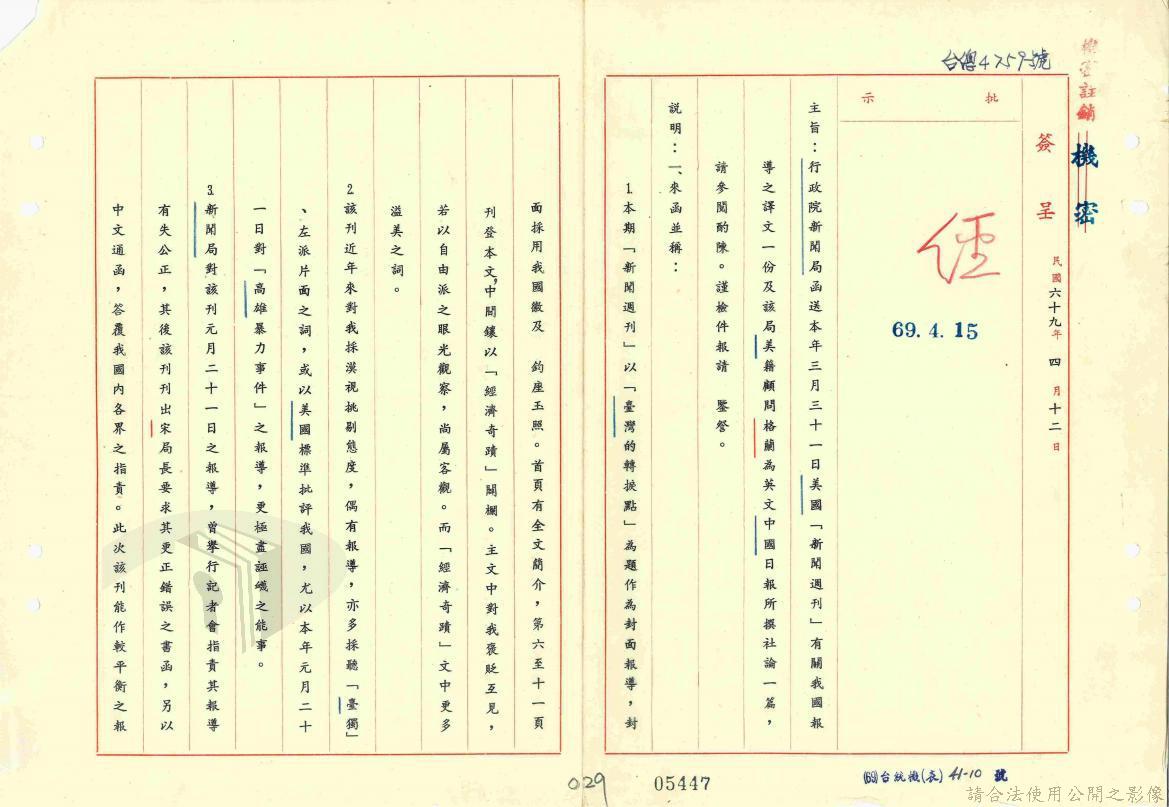 台總4759號
機密註銷
機密
簽呈
民國六十九年四月十二日
批示
69.4.15
主旨:行政院新聞局函送本年三月三十一日美國「新聞週刊」有關我國報
導之譯文一份及該局美籍顧問格蘭為英文中國日報所撰社論一篇,
請參閱酌陳。謹檢件報請 鑒詧。
說明:一、來函並稱:
1.本期「新聞週刊」以「臺灣的轉捩點」為題作為封面報導,封
面採用我國徽及 鈞座玉照。首頁有全文簡介,第六至十一頁
刊登本文,中間鑲以「經濟奇蹟」闢欄。主文中對我褒貶互見,
若以自由派之眼光觀察,尚屬客觀。而「經濟奇蹟」文中更多
溢美之詞。
2.該刊近年來對我採漠視挑剔態度,偶有報導,亦多採聽「臺獨」
、左派片面之詞,或以美國標準批評我國,尤以本年元月二十
一日對「高雄暴力事件」之報導,更極盡誣衊之能事。
3.新聞局對該刊元月二十一日之報導,曾舉行記者會指責其報導
有失公正,其後該刊刊出宋局長要求其更正錯誤之書函,另以
中文通函,答覆我國內各界之指責。此次該刊能作較平衡之報
029
05447
(69)台統機(表)41-10號
請合法使用公開之影像